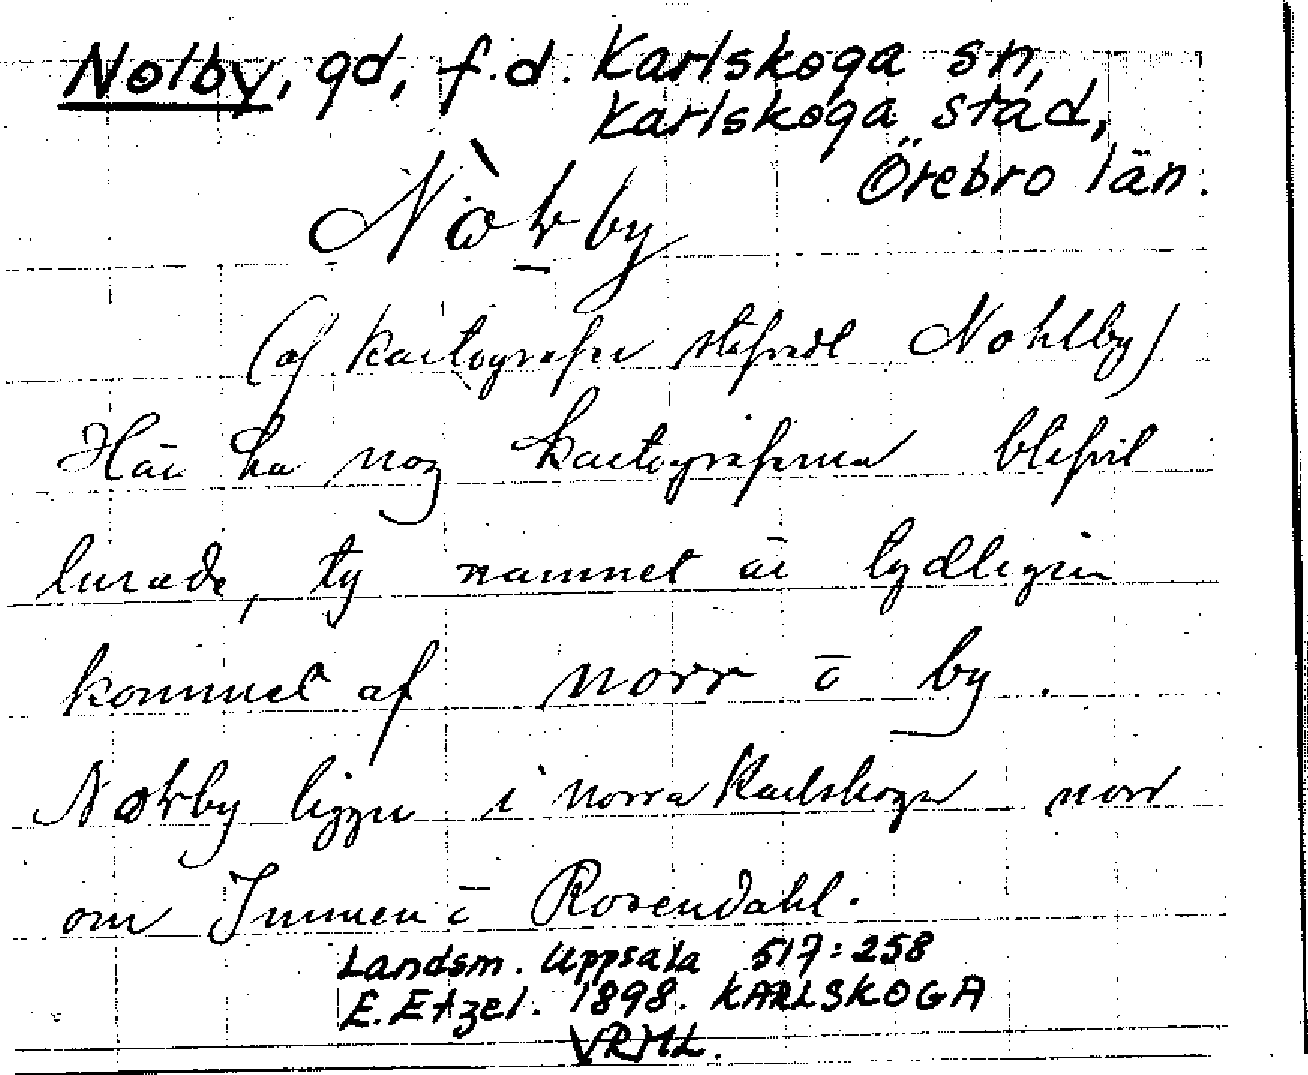 Nolby, gd, f.d. Karlskoga sn,
Karlskoga stad,
Örebro län.
(af kartografer stafvadt Nohlby)
Här ha nog kartograferna blifvit
lurade, ty namnet är tydligen
kommet af norr o by.
ligger i norra Karlskoga norr
om Immen o Rosendahl.
Landsm. Uppsala 517:258
E. Etzel. 1898. KARLSKOGA